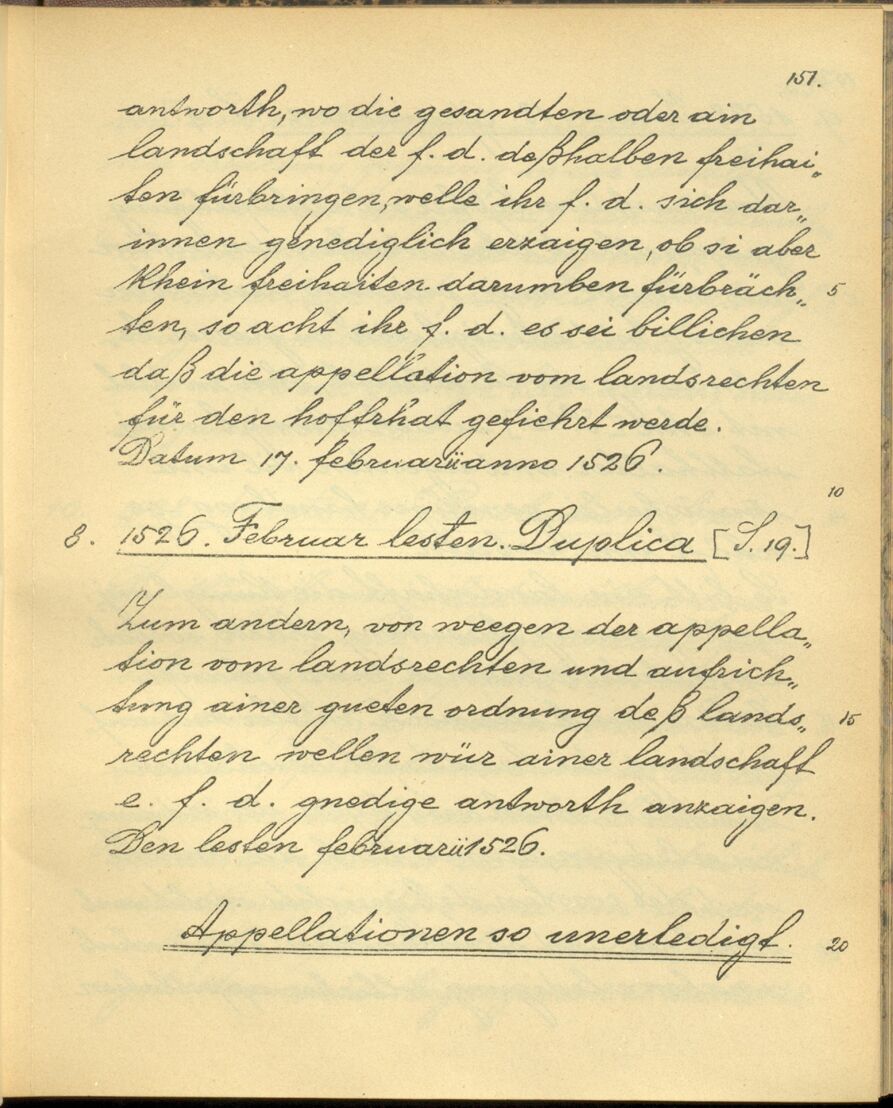 151.
antworth, wo die gesandten oder ain
landschaft der f. d. deßhalben freihai„
ten fürbringen, welle ihr f. d. sich dar„
innen genediglich erzaigen, ob si aber
khein freihaiten darumben fürbräch„ 5
ten, so acht ihr f. d. es sei billichen
daß die appellation vom landsrechten
für den hoffrhat gefiehrt werde.
Datum 17. februarii anno 1526.
10
8. 1526. Februar lesten. Duplica [S. 19.]
Zum andern, von weegen der appella„
tion vom landsrechten und aufrich„
tung ainer gueten ordnung deß lands„ 15
rechten wellen wür ainer landschaft
e. f. d. gnedige antworth anzaigen.
Den lesten februarii 1526.
Appellationen so unerledigt. 20